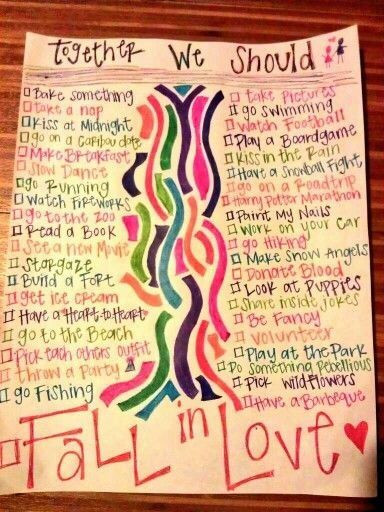 Together We Should
Bake something
take a nap
Kiss at Midnight
go on a Caribou date
Make Breakfast
Slow Dance
go Running
Watch Fireworks
go to the Zoo
Read a Book
See a new Movie
Stargaze
Build a Fort
get ice cream
Have a Heart-to-Heart
go to the Beach
Pick each others outfit
throw a Party
go Fishing
take Pictures
go Swimming
Watch Football
Play a Boardgame
Kiss in the Rain
Have a Snowball Fight
go on a Roadtrip
Harry Potter Marathon
Paint My Nails
Work on your Car
go Hiking
Make Snow Angels
Donate Blood
Look at Puppies
Share inside jokes
Be Fancy
Volunteer
Play at the Park
Do something Rebellious
Pick Wildflowers
Have a Barbeque
Fall in Love